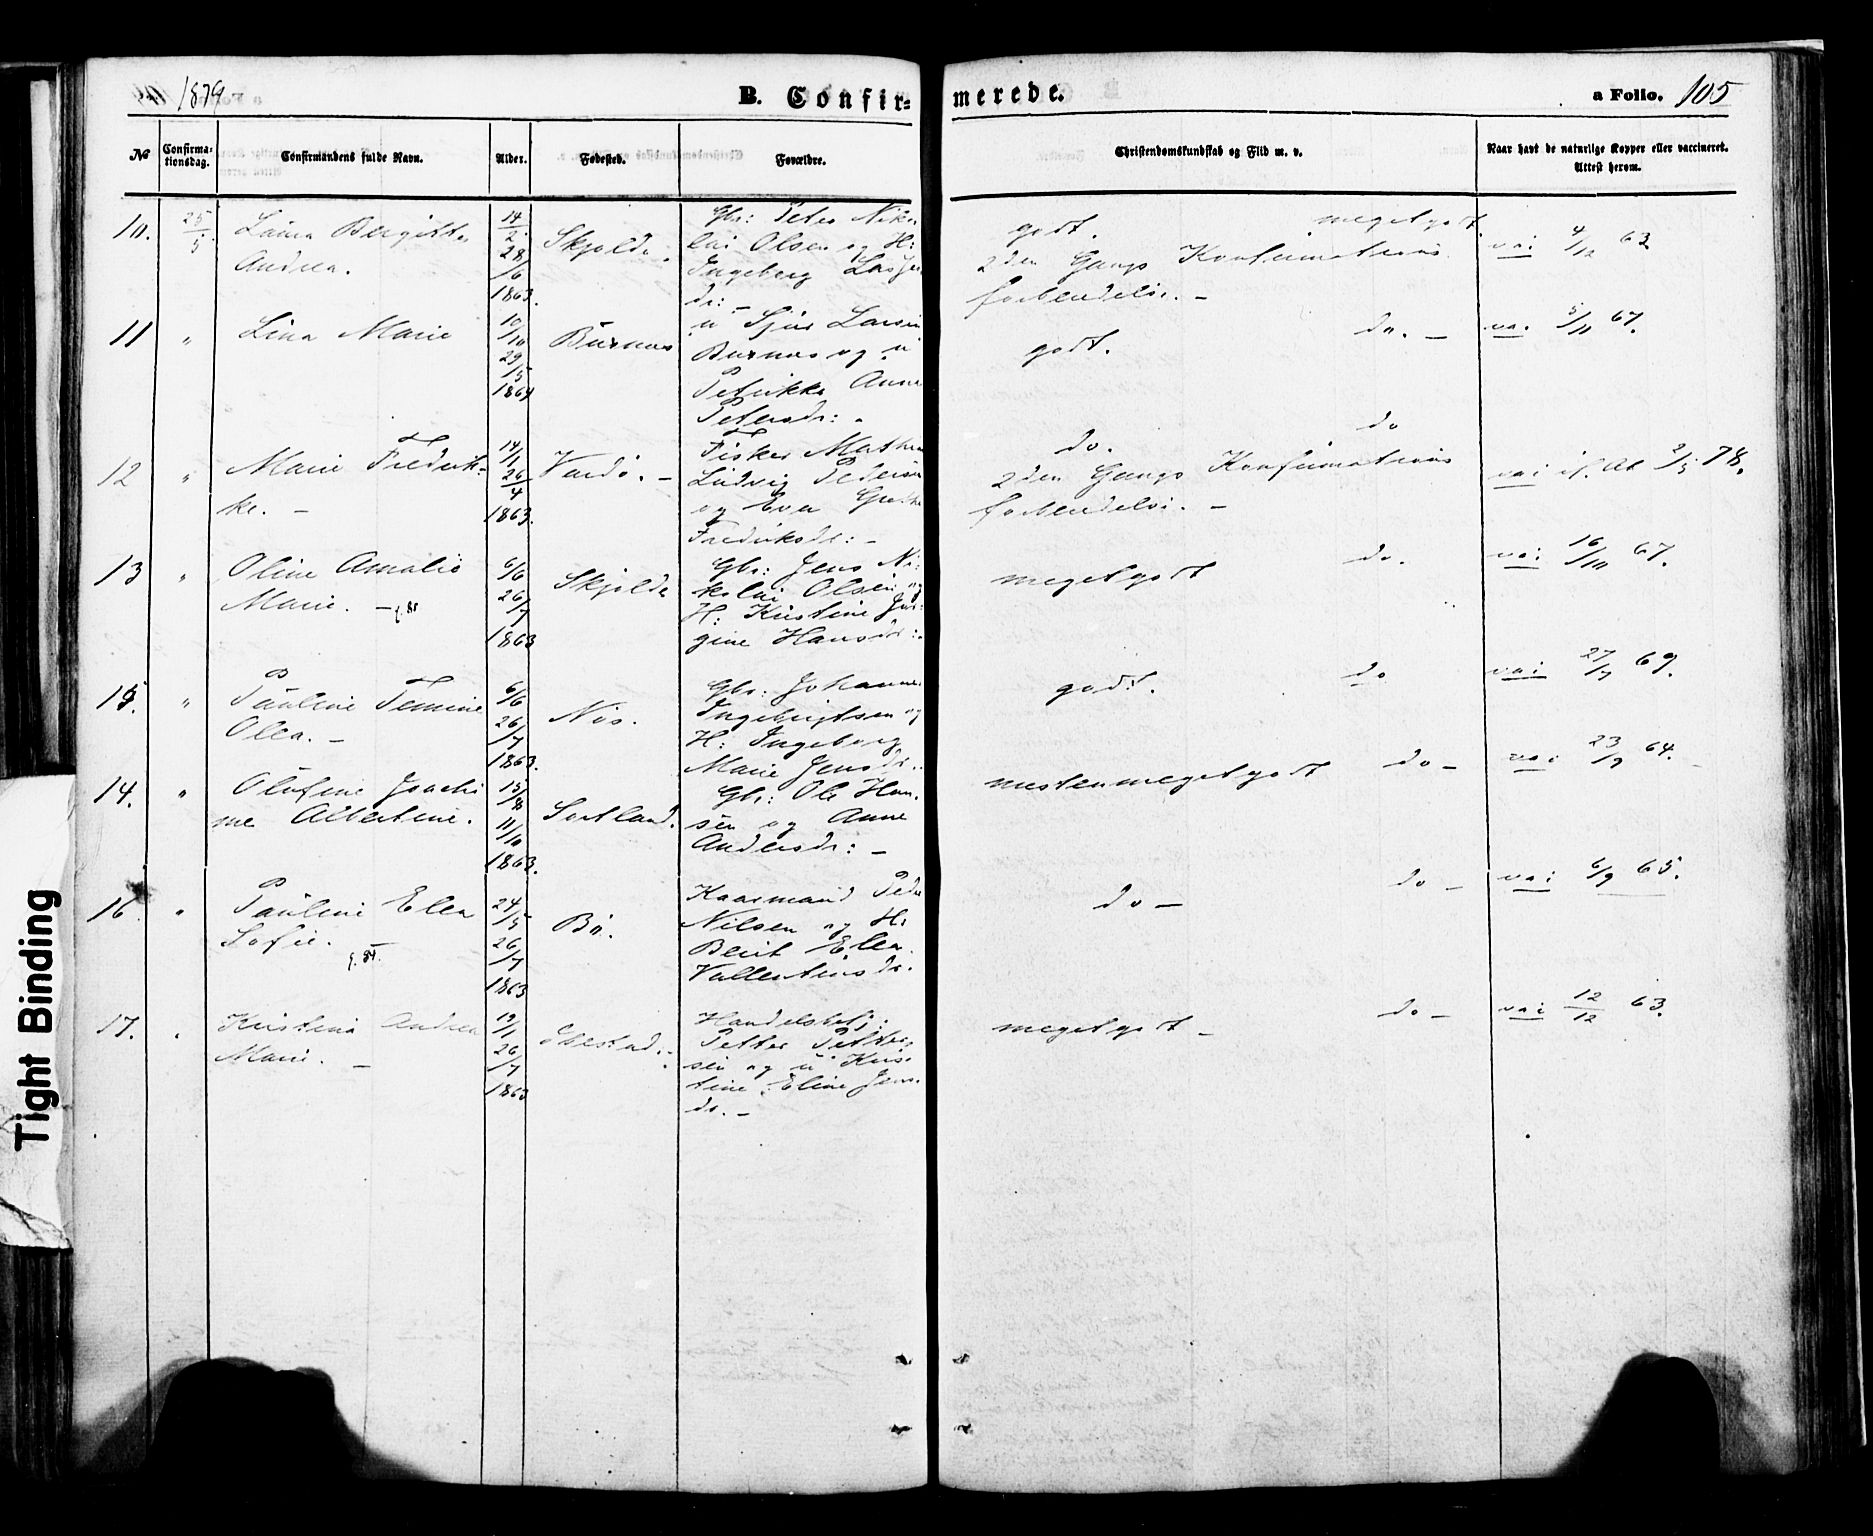 1879
B. Confir= merede.
a Folio. 105
No
Confirma-
tionsdag.
Confirmandens fulde Navn.
Alder.
Fødested.
Forældre.
Christendomskundskab og Flid m. v.
Naar havt de naturlige Kopper eller vaccineret.
Attest herom.
10. 25/5 Laura Bergitte
Andrea.
14/2
28/6
1863.
Skjolde.
Gbr: Peter Niko-
lai Olsen og H:
Ingeberg
dr: –
godt. megetgodt.
2den Gangs Konfirmations
forberedelse. –
vai 4/12 63
11 " Lina Marie
10/10
29/5
1864
Burnes
u Sjur Larsen
Burnes og u
Petrikke Anne
Petersdr: .
godt. do. –
va. 5/11 67.
12 " Marie Fredrik-
ke. –
14/11
26/4
1863.
Vardø. –
Fisker Mathias
Ludvig Pedersen
og Ever Grethe
Fredriksdr: –
do. do
2den Gangs Konfirmations
forberedelse. –
vai if. At 2/5 78.
13 " Oline Amalie
Marie. –
6/6
26/7
1863
Skjolde
Gbr: Jens Ni-
kolai Olsen og
H: Kristine Jør-
gine Hansdr:.
megetgodt do.
vai 16/10 67.
15. " Pauline Temine
Olea. –
6/6
26/7
1863.
Nøs.
Gbr: Johannes
Ingebrigtsen og
H: Ingeborg
Marie Jensdr:.
godt. do
vai 27/7 69.
14. " Olufine Joachi
me Albertine.
15/8
11/10
1863.
Sortland.
Gbr: Ole Han-
sen og Anne
Andersdr: –
næsten megetgodt do –
vai 23/9 64.
16. " Pauline Elea
Sofie.
24/5
26/7
1863
Bø.
Kaarmand Peder
Nilsen og H:
Berit Elea
Vallentinsdr.
do – do –
vai 6/9 65.
17. " Kristine Andrea
Marie. –
19/1
26/7
1863
Handelsbetj:
Petter Petter-
sen og u Kris-
tine Eline Jens-
dr. –
megetgodt – do –
vai 12/12 63.
Tight Binding